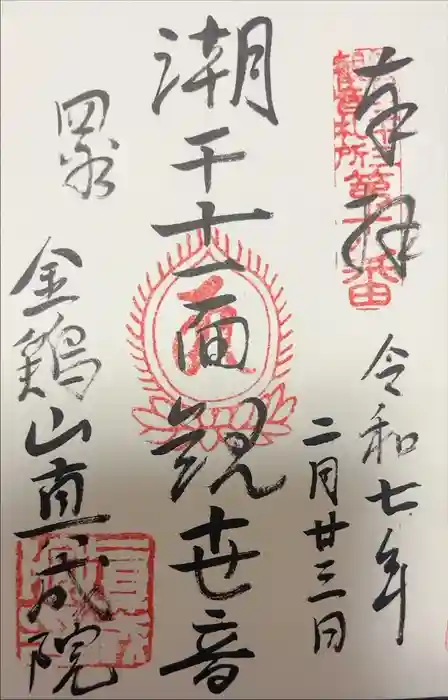 奉拝
観音札所
第十八番
令和七年
二月廿三日
潮干十一面観世音
四谷
金鶏山真成院